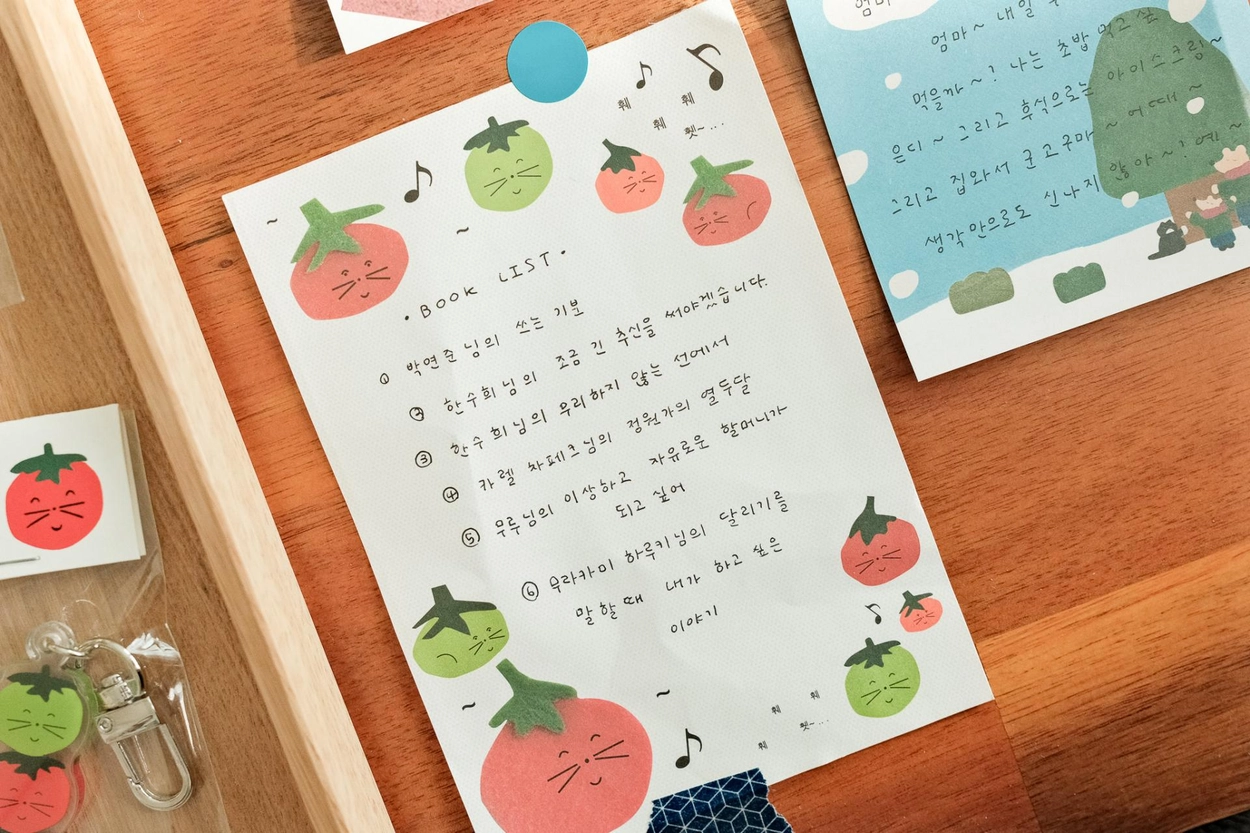 훼
훼
훼
휏~...
·BOOK LIST·
① 박연준님의 쓰는 기분
② 한수희님의 조금 긴 추신을 써야겠습니다.
③ 한수희님의 무리하지 않는 선에서
④ 카렐 차페크님의 정원가의 열두달
⑤ 무루님의 이상하고 자유로운 할머니가
되고 싶어
⑥ 무라카미 하루키님의 달리기를
말할때 내가 하고 싶은
이야기
훼
훼
휏~...
훼
엄마
엄마~ 내일
먹을까~? 나는 초밥 먹고싶
은디~ 그리고 후식으로는 아이스크림~
그리고 집와서 군고구마~ 어때~
생각만으로도 신나지 않아~? 예~